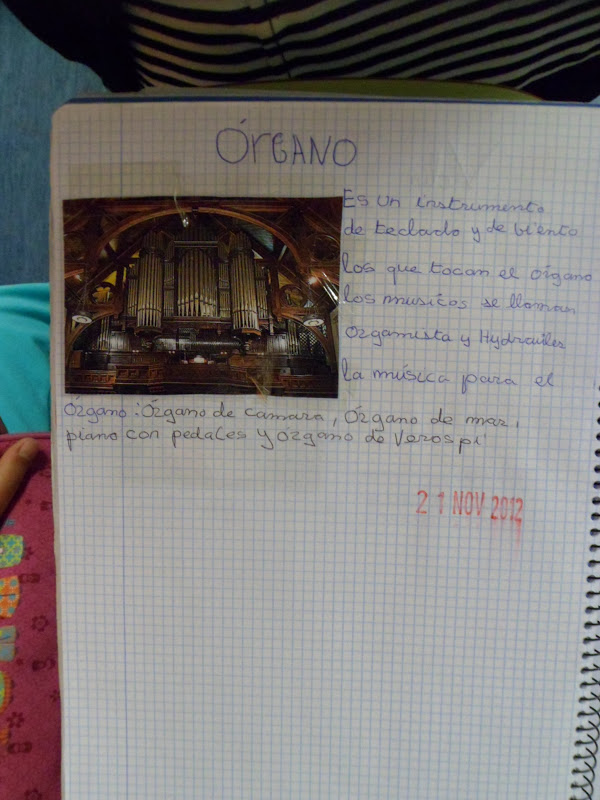 ÓrGANO
Es un instrumento
de teclado y de biento
los que tocan el órgano
los musicos se llaman
orgamista y Hydraules
la música para el
Órgano: Órgano de camara, Órgano de mar,
piano con pedales y órgano de Verospi
21 NOV 2012